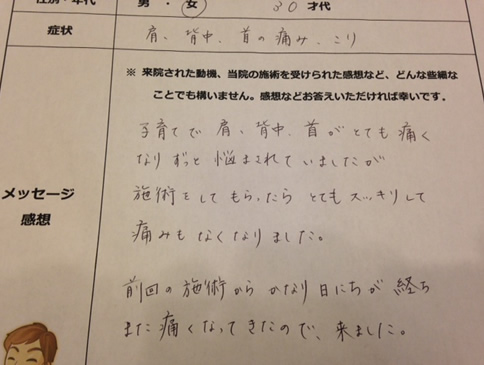 性別・年代
男・女
30才代
症状
肩、背中、首の痛み、こり
※ 来院された動機、当院の施術を受けられた感想など、どんな些細な
ことでも構いません。感想などお答えいただければ幸いです。
メッセージ
感想
子育てで肩、背中、首がとても痛く
なりずっと悩まされていましたが
施術をしてもらったらとてもスッキリして
痛みもなくなりました。
前回の施術からかなり日にちが経ち
また痛くなってきたので、来ました。